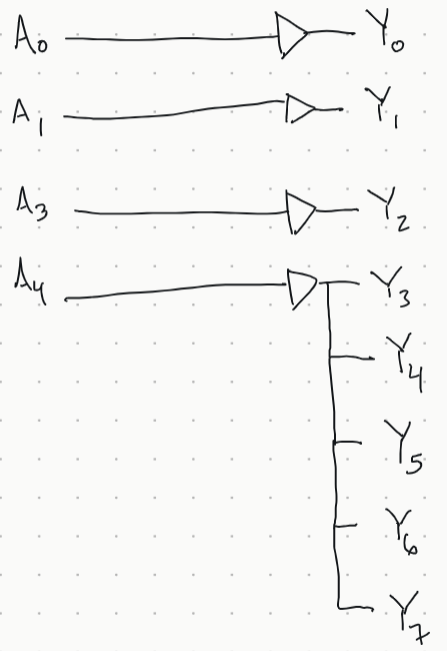 A0 Y0
A1 Y1
A3 Y2
A4 Y3
Y4
Y5
Y6
Y7